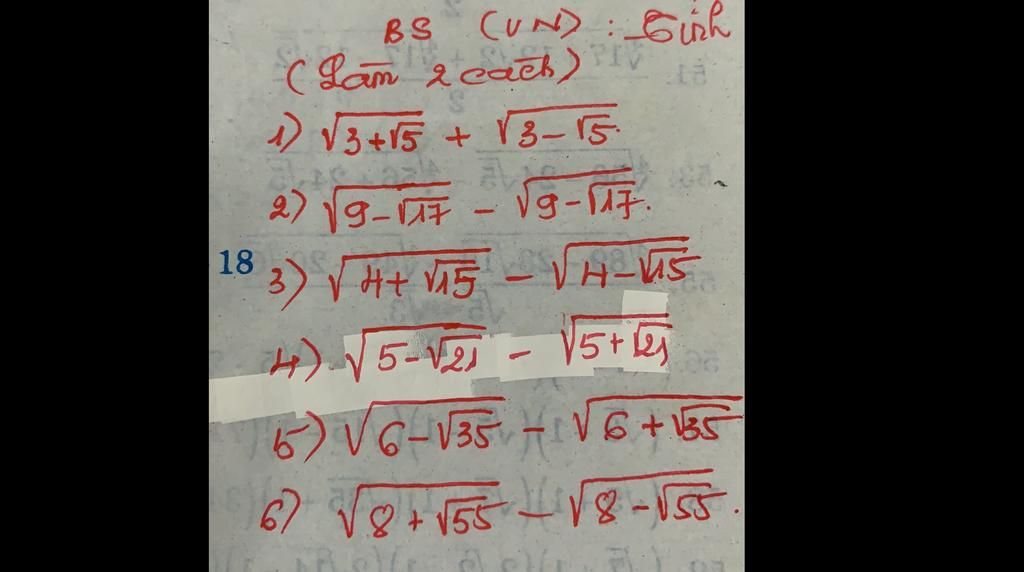 BS (VN) : Tính
(Làm 2 cách)
1) √(3+√5) + √(3-√5).
2) √(9-√17) - √(9-√17).
18
3) √(4+√15) - √(4-√15)
4) √(5-√21) - √(5+√21)
5) √(6-√35) - √(6+√35)
6) √(8+√55) - √(8-√55).